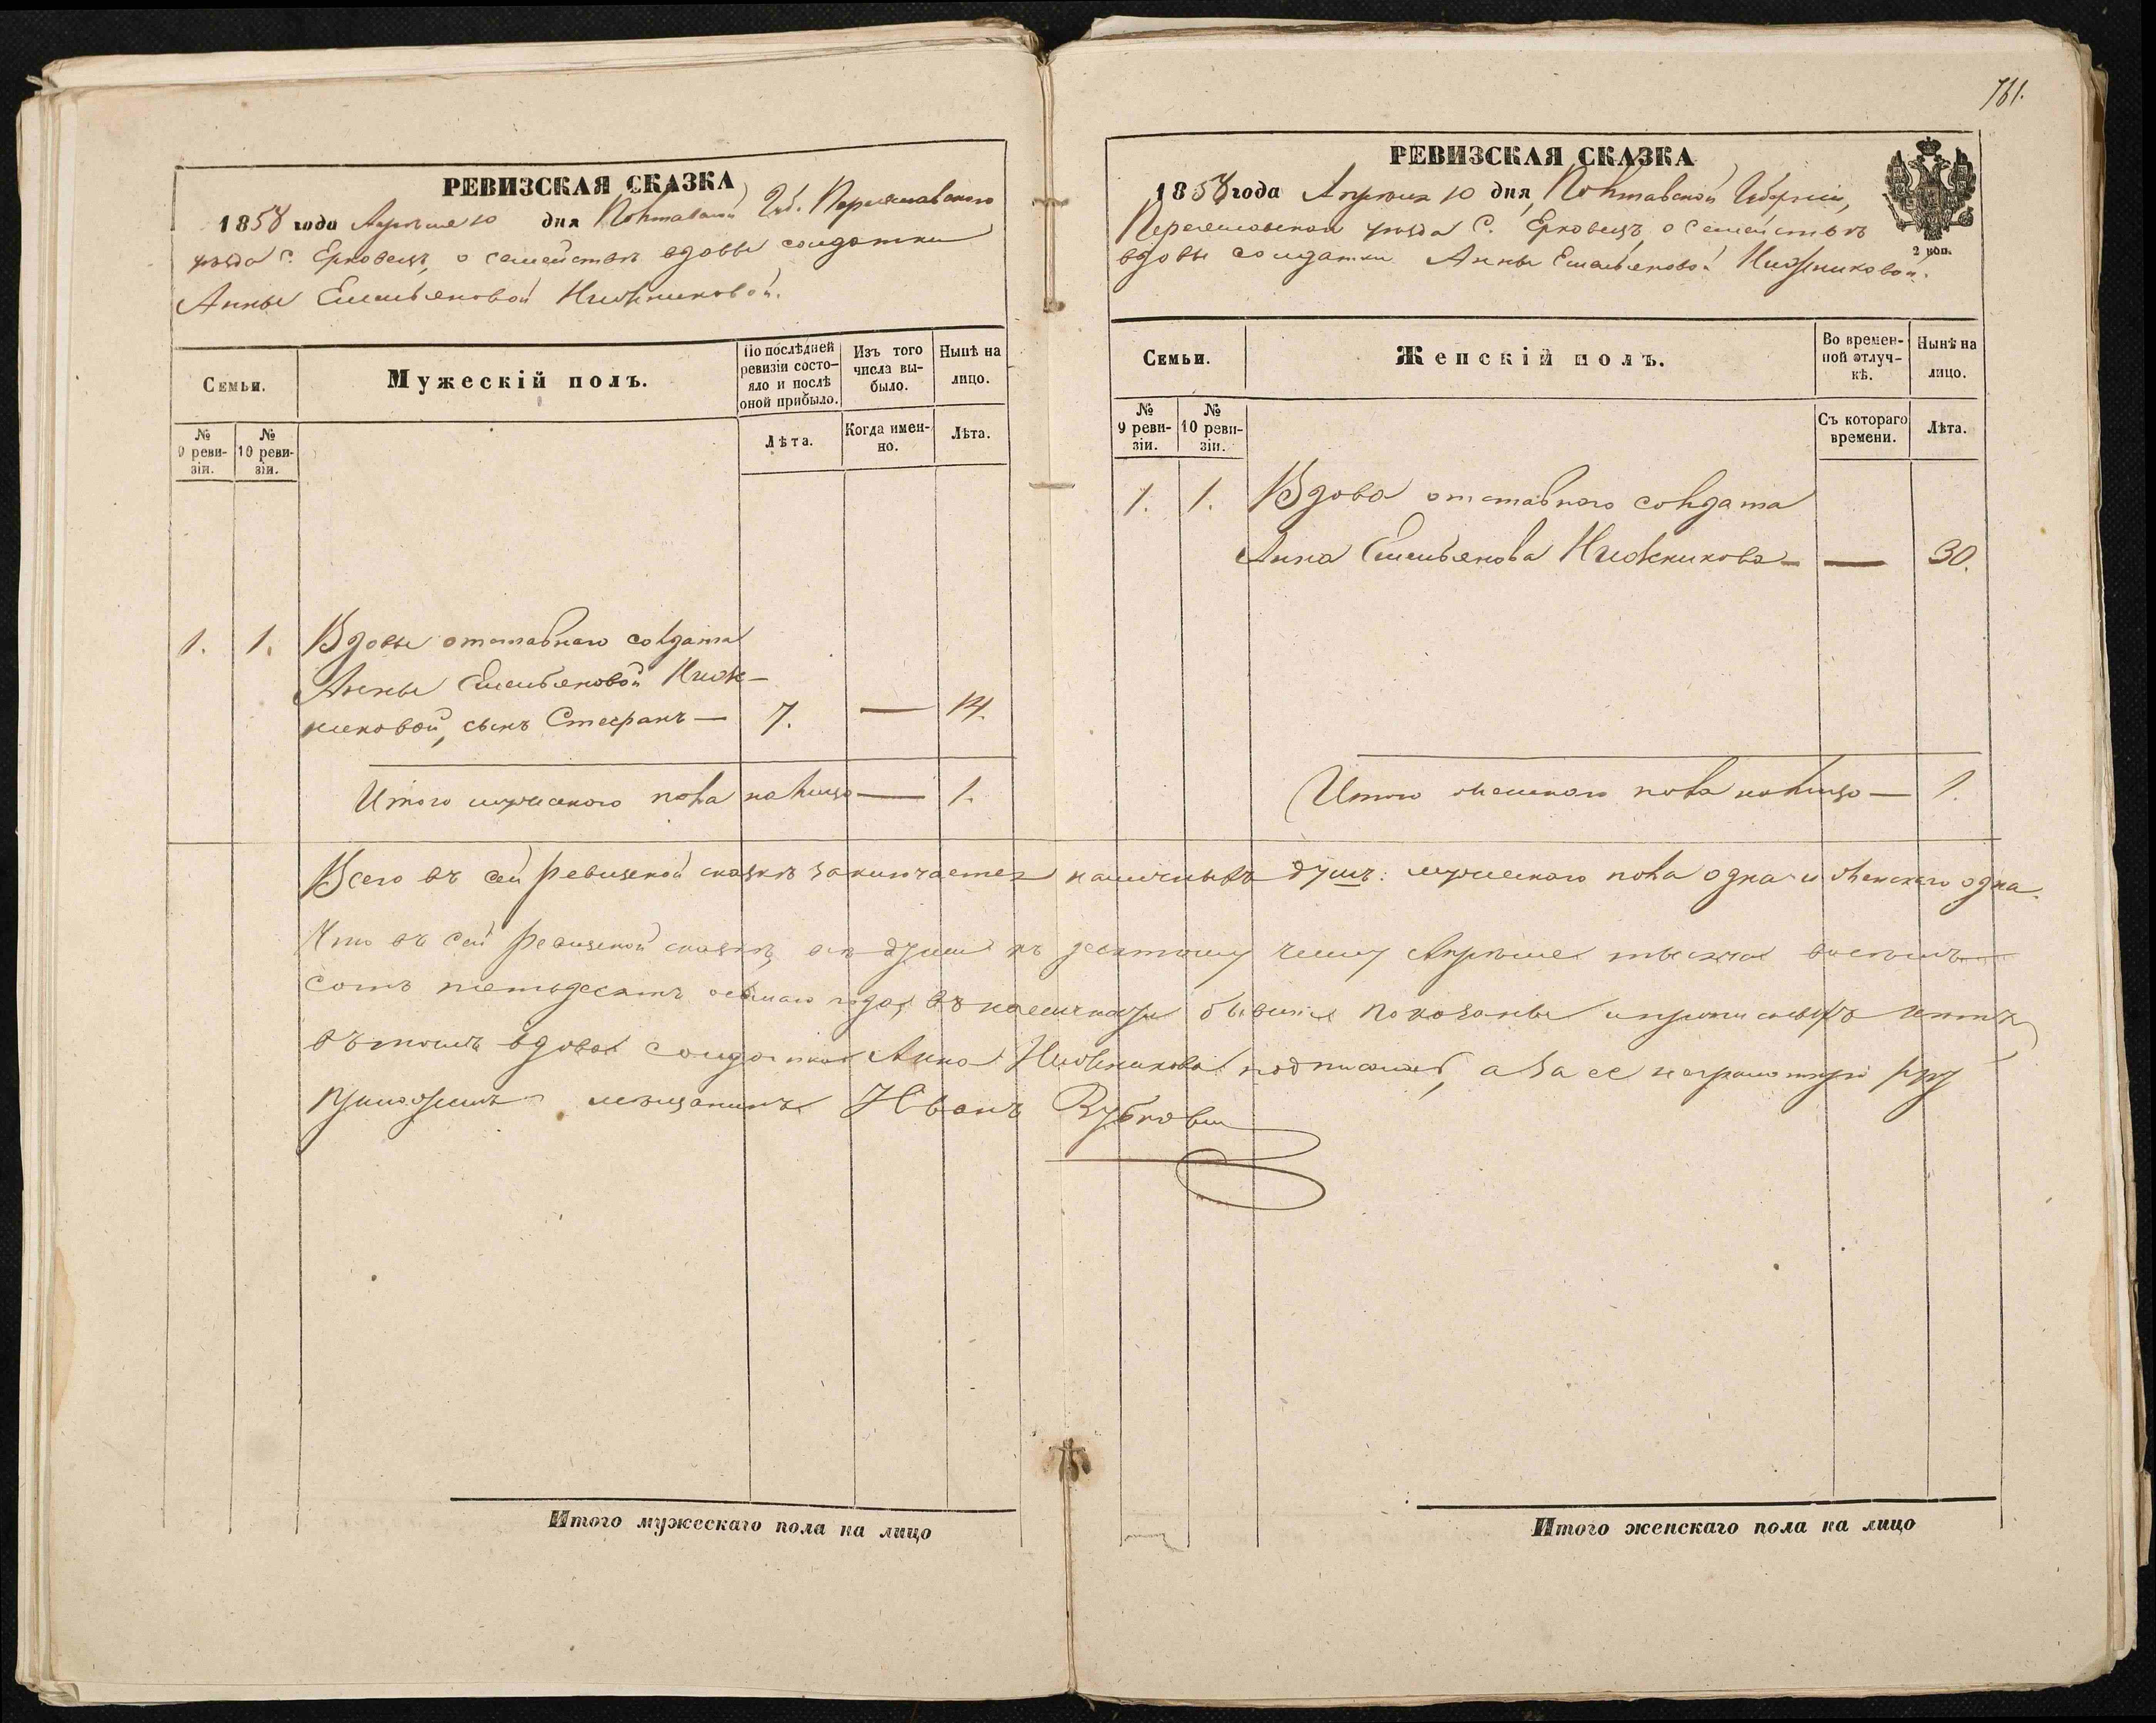 РЕВИЗСКАЯ СКАЗКА
1858 года Апреля 10 дня Полтавской Губ. Переяславского
уезда С. Ерковецъ, о семействѣ вдовы солдатки
Анны Емельяновой Нижниковой.
Семьи.
Мужескій полъ.
По послѣдней ревизіи состояло и послѣ оной прибыло.
Изъ того числа выбыло.
Нынѣ на лицо.
№ 9 ревизіи.
№ 10 ревизіи.
Лѣта.
Когда именно.
Лѣта.
1. 1. Вдовы отставного солдата
Анны Емельяновой Ниж-
никовой, сынъ Стефанъ — 7. — 14.
Итого мужеского пола на лицо — 1.
761.
РЕВИЗСКАЯ СКАЗКА
1858 года Апреля 10 дня, Полтавской Губернии,
Переяславской уезда С. Ерковецъ, о семействѣ
вдовы солдатки Анны Емельяновой Нижниковой.
2 коп.
Семьи.
Женскій полъ.
Во временной отлучкѣ.
Нынѣ на лицо.
№ 9 ревизіи.
№ 10 ревизіи.
Съ котораго времени.
Лѣта.
1. 1. Вдова отставного солдата
Анна Емельянова Нижникова — — 30.
Итого женского пола на лицо — 1.
Всего въ сей ревизской сказкѣ заключается наличныхъ душъ: мужеского пола одна и женского одна.
Что въ сей ревизской сказкѣ, все души къ десятому числу Апреля тысяча восемь
сотъ пятьдесятъ осьмаго года, въ наличности бывшие показаны и прописныхъ нетъ
въ томъ вдова солдатка Анна Нижникова подписала, а за ее неграмотную руку
приложилъ мещанинъ Иванъ
Итого мужескаго пола на лицо
Итого женскаго пола на лицо